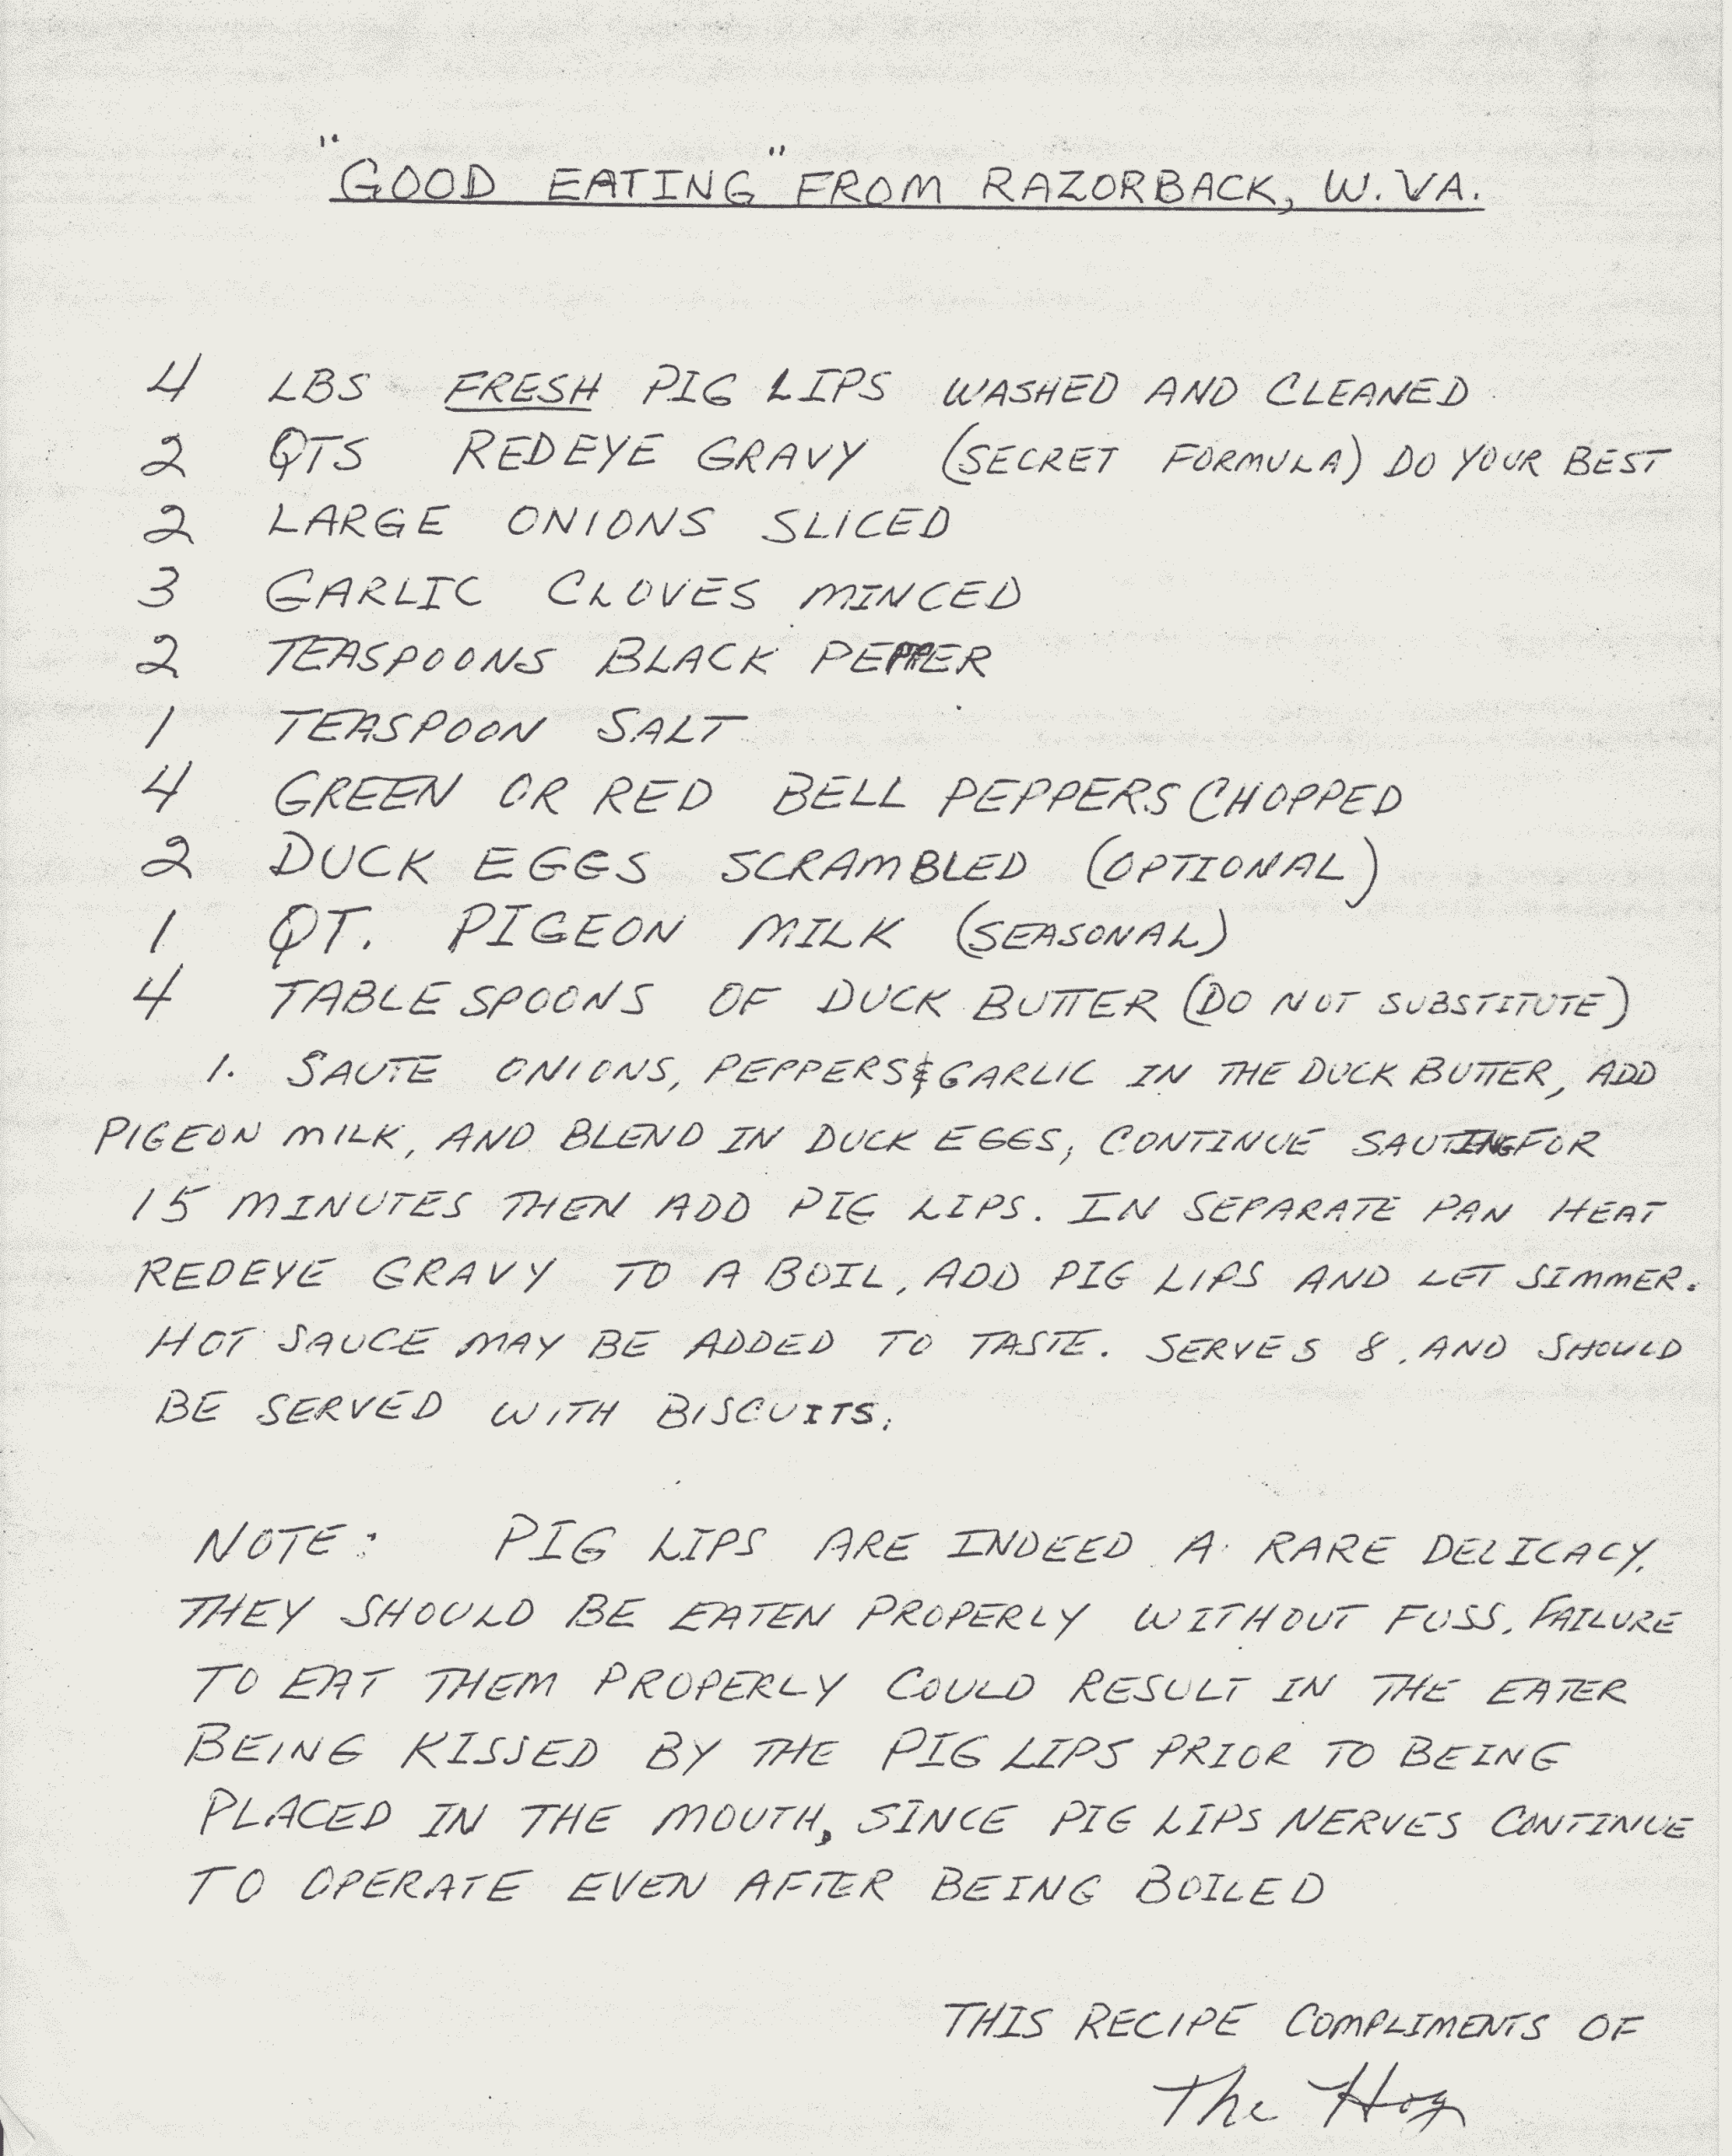 "GOOD EATING" FROM RAZORBACK, W.VA.
4 LBS FRESH PIG LIPS WASHED AND CLEANED
2 QTS REDEYE GRAVY (SECRET FORMULA) DO YOUR BEST
2 LARGE ONIONS SLICED
3 GARLIC CLOVES MINCED
2 TEASPOONS BLACK PEPPER
1 TEASPOON SALT
4 GREEN OR RED BELL PEPPERS CHOPPED
2 DUCK EGGS SCRAMBLED (OPTIONAL)
1 QT. PIGEON MILK (SEASONAL)
4 TABLESPOONS OF DUCK BUTTER (DO NOT SUBSTITUTE)
1. SAUTE ONIONS, PEPPERS & GARLIC IN THE DUCK BUTTER, ADD
PIGEON MILK, AND BLEND IN DUCK EGGS, CONTINUE SAUTING FOR
15 MINUTES THEN ADD PIG LIPS. IN SEPARATE PAN HEAT
REDEYE GRAVY TO A BOIL, ADD PIG LIPS AND LET SIMMER.
HOT SAUCE MAY BE ADDED TO TASTE. SERVES 8. AND SHOULD
BE SERVED WITH BISCUITS.
NOTE: PIG LIPS ARE INDEED A RARE DELICACY.
THEY SHOULD BE EATEN PROPERLY WITHOUT FUSS. FAILURE
TO EAT THEM PROPERLY COULD RESULT IN THE EATER
BEING KISSED BY THE PIG LIPS PRIOR TO BEING
PLACED IN THE MOUTH, SINCE PIG LIPS NERVES CONTINUE
TO OPERATE EVEN AFTER BEING BOILED
THIS RECIPE COMPLIMENTS OF
The Hog